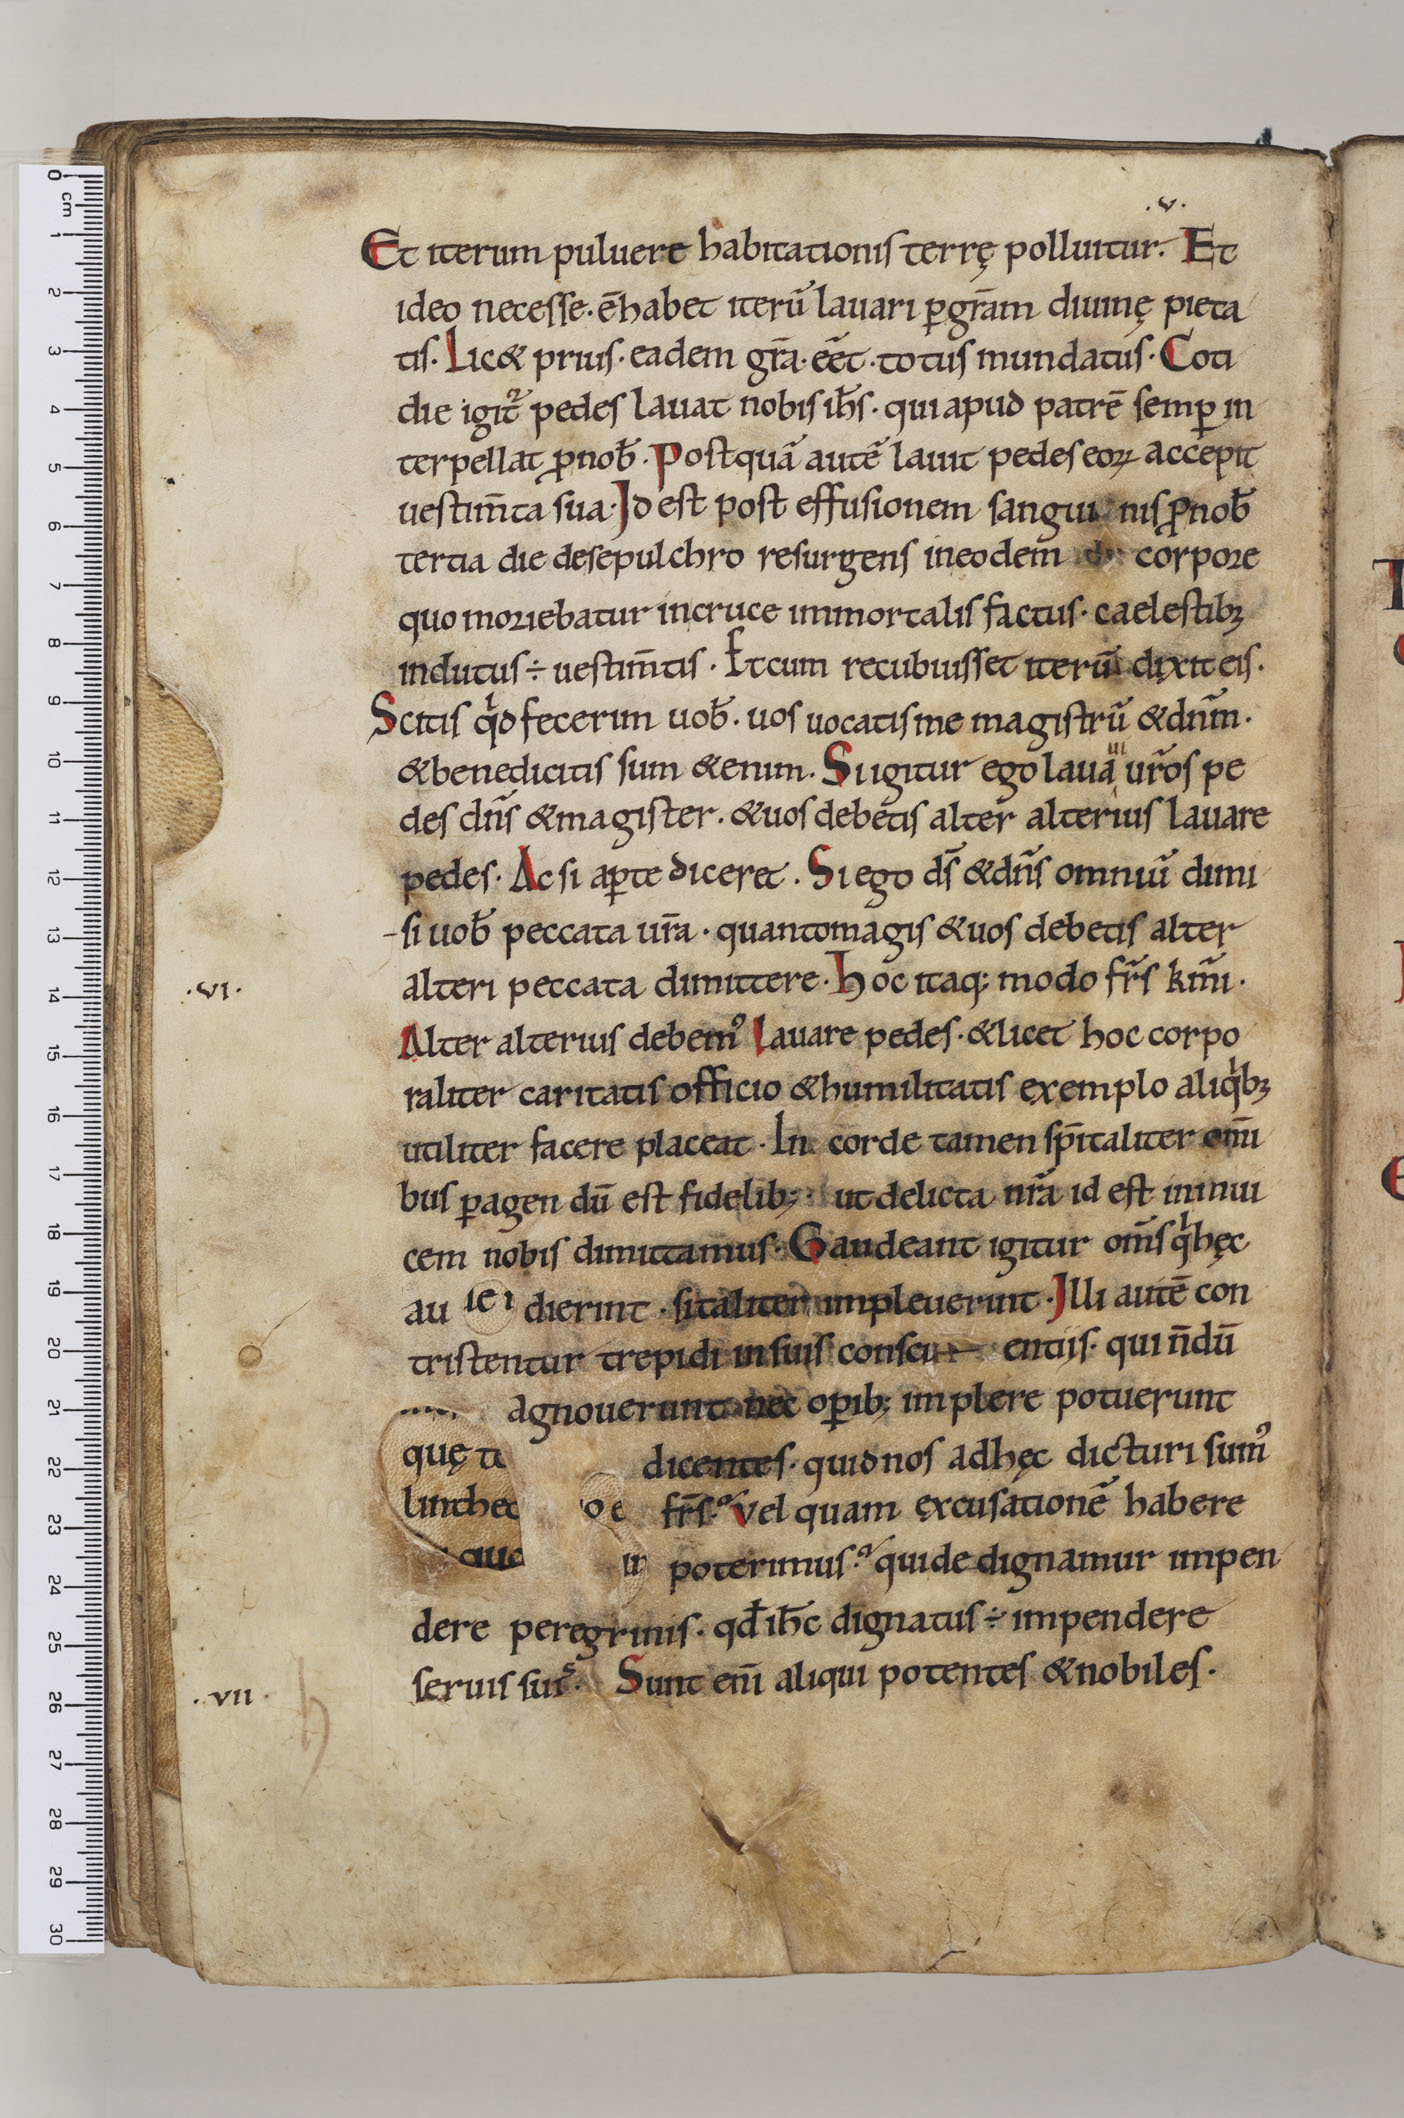 .v.
Et iterum puluere habitationis terrę polluitur. Et
ideo necesse. ē habet iterū lauari ꝑ gr̄am diuinę pieta
tis. Lic& prius. eadem gr̄a. eēt. totus mundatus. Coti
die igit᷑ pedes lauat nobis ih̄s. qui apud patrē semꝑ in
terpellat ꝓ nob̄. Postquā autē lauit pedes eoꝝ accepit
uestim̄ta sua. Id est post effusionem sangui nis ꝓ nob̄
tertia die de sepulchro resurgens in eodem corpore
quo moriebatur in cruce immortalis factus. caelestibꝫ
indutus ÷ uestim̄tis. Et cum recubuisset iterū dixit eis.
Scitis qͥd fecerim uob̄. uos uocatis me magistrū & dn̄m.
& benedicitis sum &enim. Si igitur ego lauaui ur̄os pe
des dn̄s & magister. & uos debetis alter alterius lauare
pedes. Ac si aꝑte diceret. Si ego ds̄ & dn̄s omniū dimi
si uob̄ peccata ur̄a. quanto magis & uos debetis alter
.vi.
alteri peccata dimittere. Hoc itaq; modo fr̄s km̄i.
Alter alterius debem᷒ lauare pedes. & licet hoc corpo
raliter caritatis officio & humilitatis exemplo aliqͥbꝫ
utiliter facere placeat. In corde tamen sp̄italiter om̄i
bus ꝑagendū est fidelib; ut delicta nr̄a id est inuui
cem nobis dimittamus. Gaudeant igitur om̄s qͥ hęc
au dierint. sitaliter impleuerint. Illi autē con
tristentur trepidi in suis consci entiis. qui n̄dū
agnouerunt nec oꝑib; implere potuerunt
dicentes. quid nos ad hęc dicturi sum᷒
fr̄s. Vel quam excusationē habere
poterimus. qui dedignamur impen
dere peregrinis. qd̄ ih̄c dignatus ÷ impendere
.vii.
seruis suis. Sunt eni̅ aliqui potentes & nobiles.